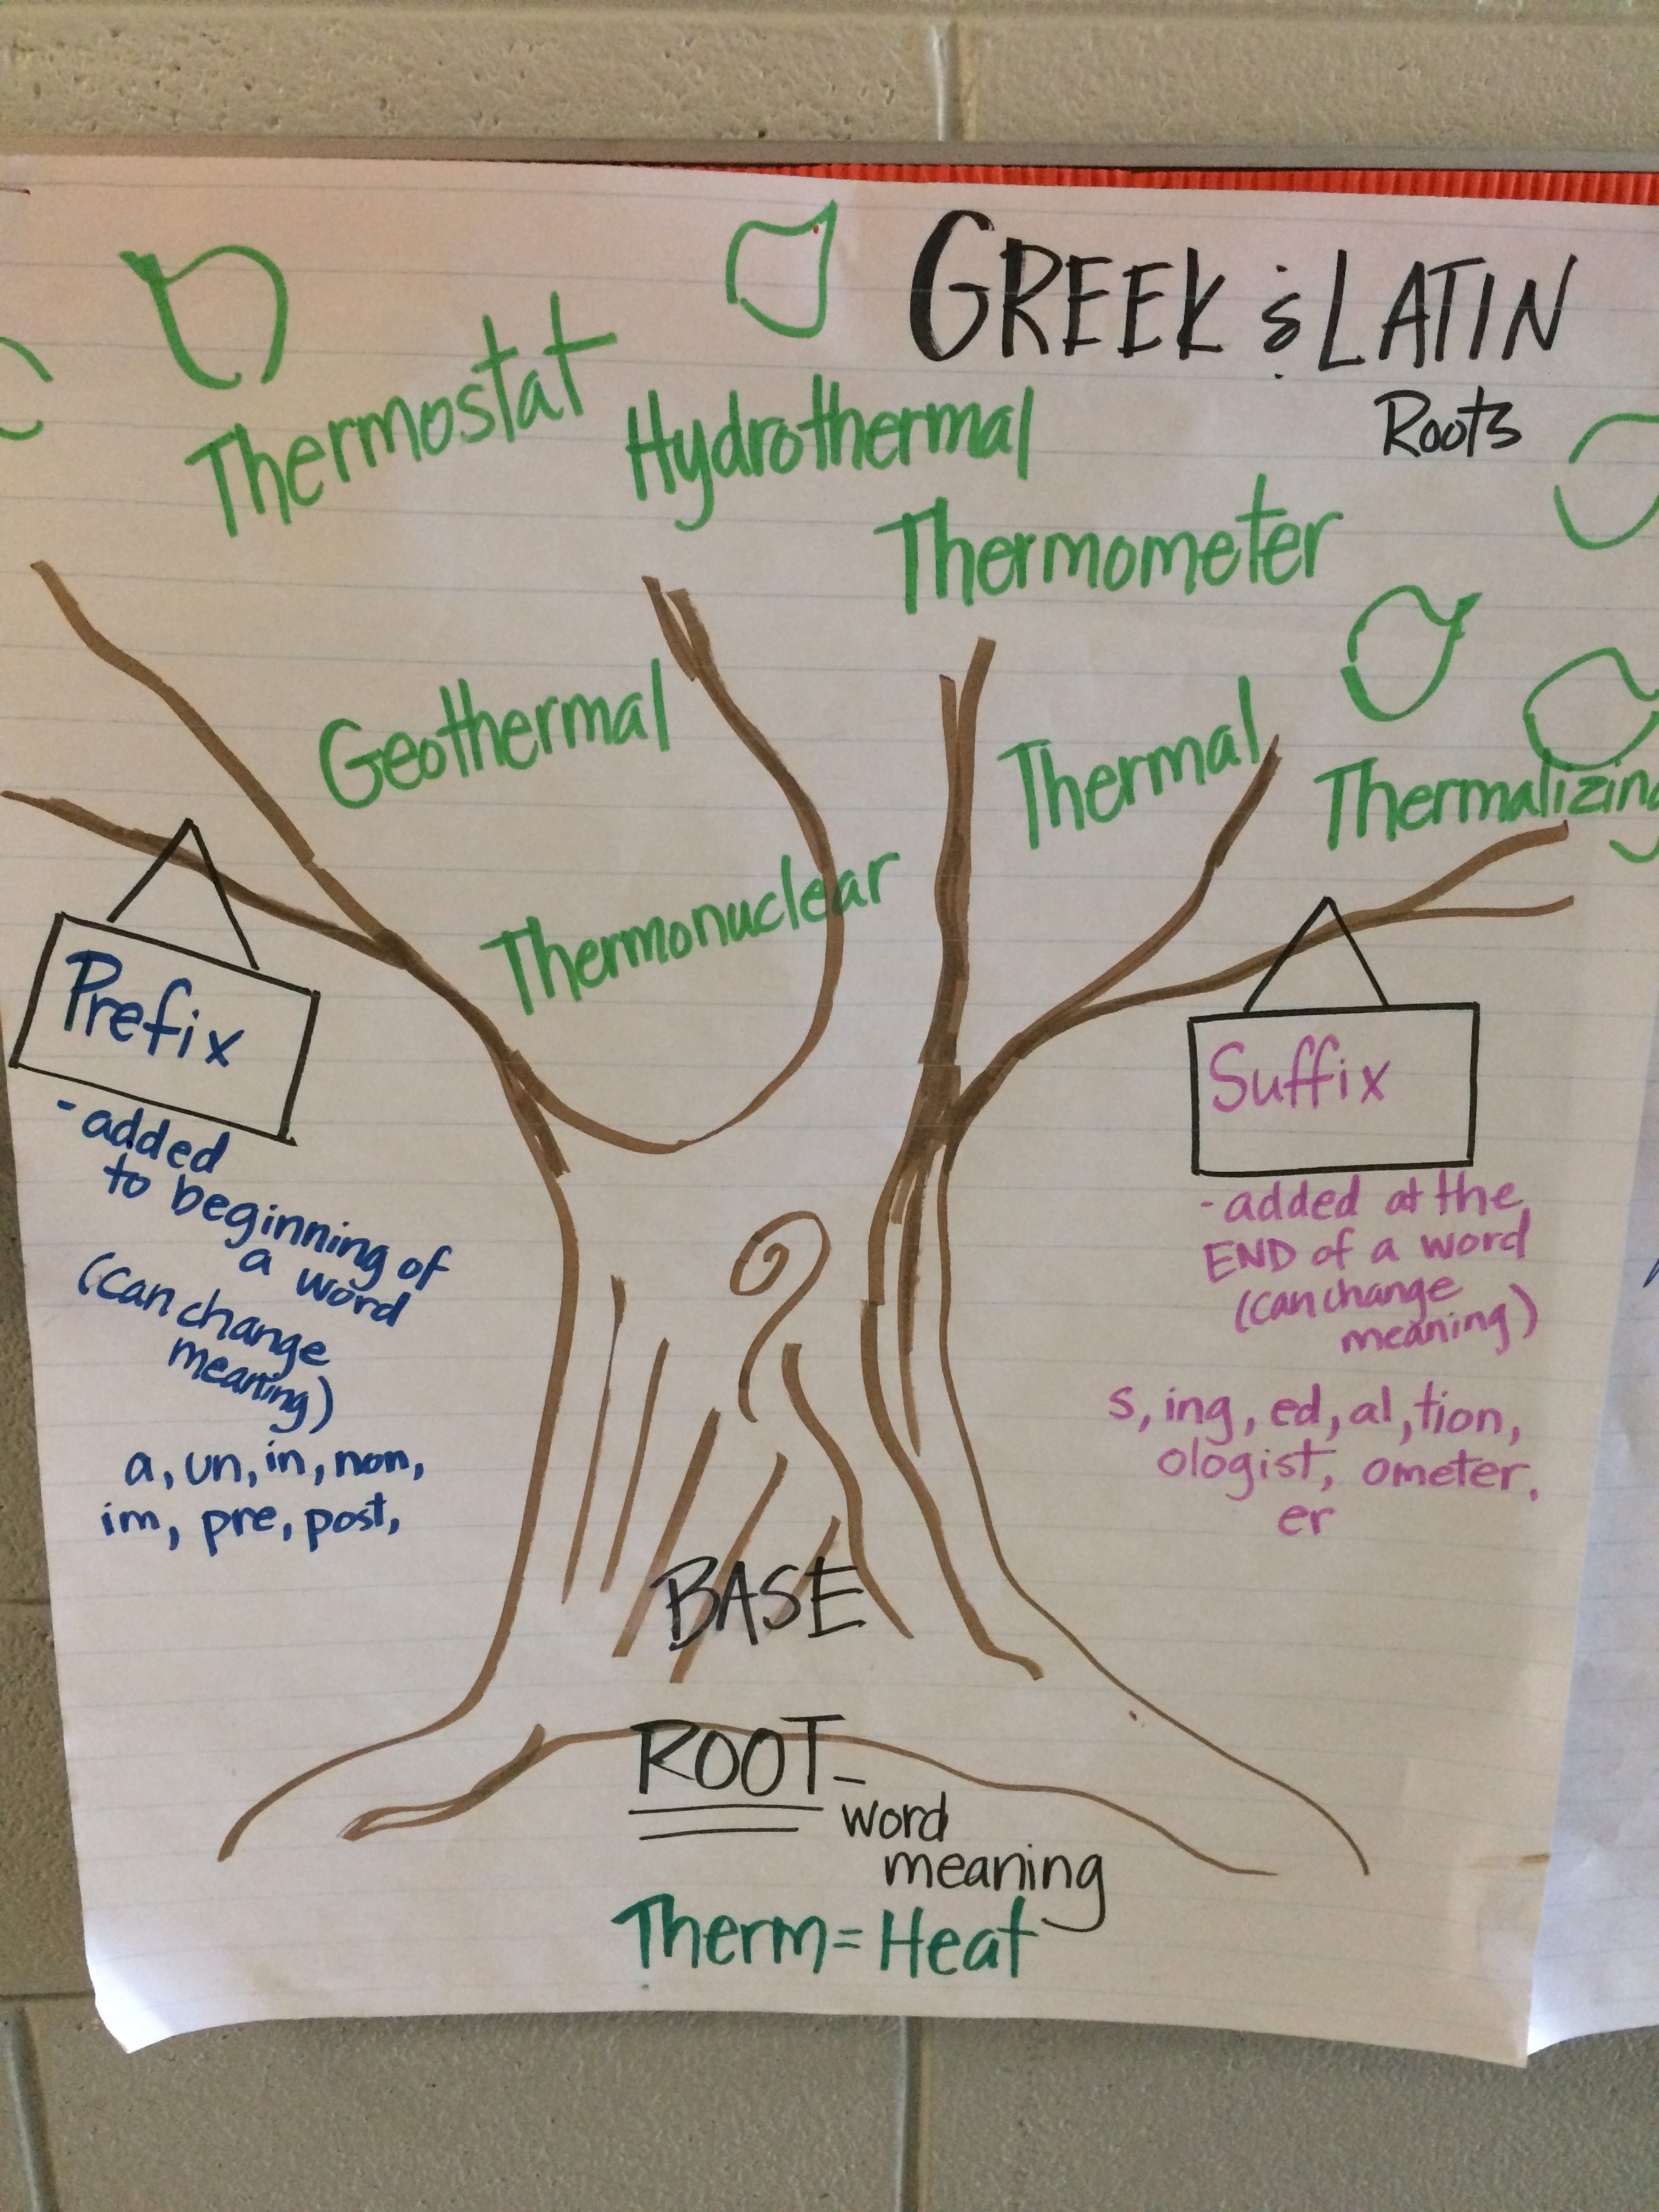 GREEK & LATIN
Roots
Thermostat
Hydrothermal
Thermometer
Geothermal
Thermal
Thermalizing
Thermonuclear
Prefix
- added
to beginning of
a word
(can change
meaning)
a, un, in, non,
im, pre, post,
Suffix
- added at the
END of a word
(can change
meaning)
s, ing, ed, al, tion,
ologist, ometer,
er
BASE
ROOT-
word
meaning
Therm = Heat